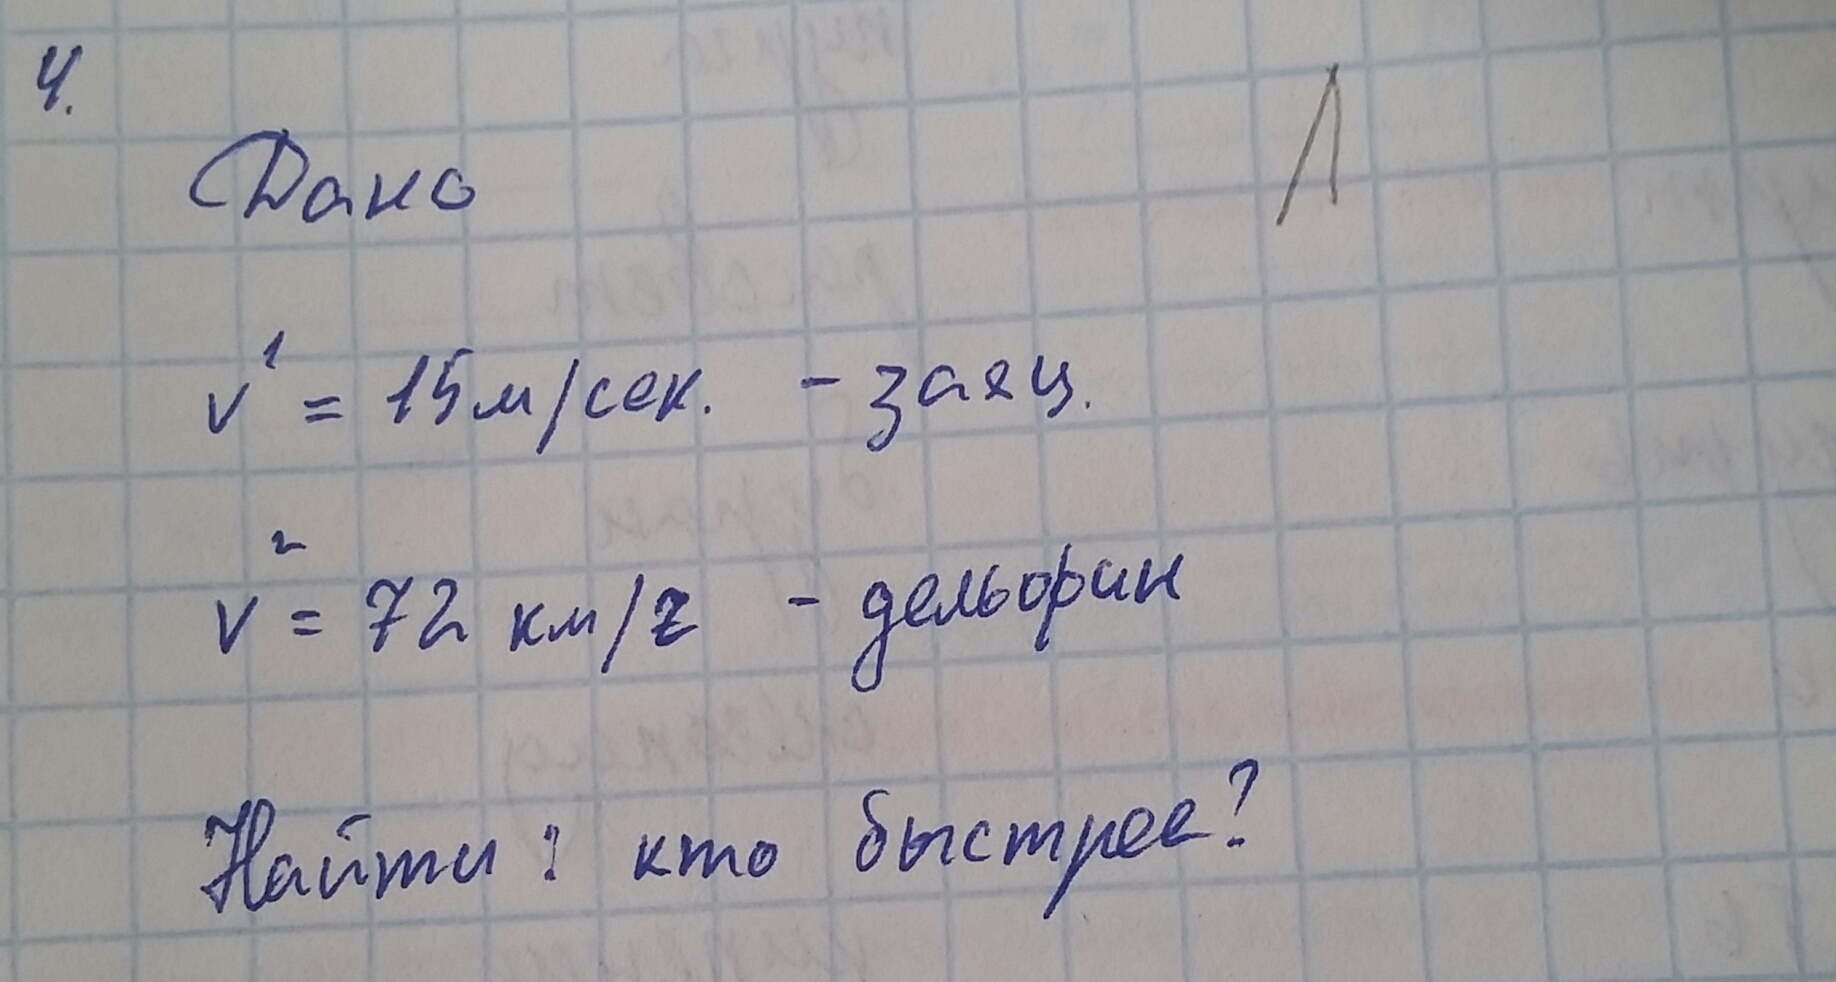 4.
Дано
Л
v¹ = 15 м/сек. - заяц.
v² = 72 км/г - дельфин
Найти: кто быстрее?